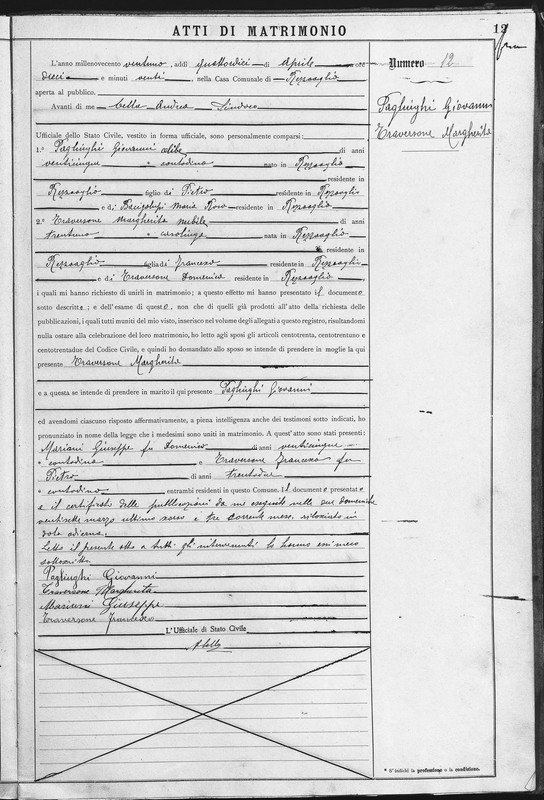 ATTI DI MATRIMONIO
12
Numero 12
Paglinghi Giovanni
Traversone Margherita
L'anno millenovecento ventuno, addì quattordici di Aprile ore
dieci e minuti venti, nella Casa Comunale di Rezzoaglio
aperta al pubblico.
Avanti di me Cella Andrea Sindaco
Ufficiale dello Stato Civile, vestito in forma ufficiale, sono personalmente comparsi:
1.º Paglinghi Giovanni celibe di anni
venticinque * contadino nato in Rezzoaglio
residente in
Rezzoaglio figlio di Pietro residente in Rezzoaglio
e di Maria Rosa residente in Rezzoaglio
2.º Traversone Margherita nubile di anni
trentuno * casalinga nata in Rezzoaglio
residente in
Rezzoaglio figlia di Francesco residente in Rezzoaglio
e di Traversone Domenica residente in Rezzoaglio
i quali mi hanno richiesto di unirli in matrimonio; a questo effetto mi hanno presentato il documento
sotto descritto; e dell'esame di questo, non che di quelli già prodotti all'atto della richiesta delle
pubblicazioni, i quali tutti muniti del mio visto, inserisco nel volume degli allegati a questo registro, risultandomi
nulla ostare alla celebrazione del loro matrimonio, ho letto agli sposi gli articoli centotrenta, centotrentuno e
centotrentadue del Codice Civile, e quindi ho domandato allo sposo se intende di prendere in moglie la qui
presente Traversone Margherita
e a questa se intende di prendere in marito il qui presente Paglinghi Giovanni
ed avendomi ciascuno risposto affermativamente, a piena intelligenza anche dei testimoni sotto indicati, ho
pronunziato in nome della legge che i medesimi sono uniti in matrimonio. A quest'atto sono stati presenti:
Mariani Giuseppe fu Domenico di anni venticinque
* contadino e Traversone Francesco fu
Pietro di anni trentadue
* contadino entrambi residenti in questo Comune. Il documento presentato
è il certificato delle pubblicazioni da me eseguite nelle due domeniche
ventisette marzo ultimo scorso e tre corrente mese, rilasciato in
data odierna.
Letto il presente atto a tutti gli intervenuti lo hanno essi meco
sottoscritto.
Paglinghi Giovanni
Traversone Margherita
Mariani Giuseppe
Traversone Francesco
L'Ufficiale di Stato Civile
A Cella
* S'indichi la professione o la condizione.